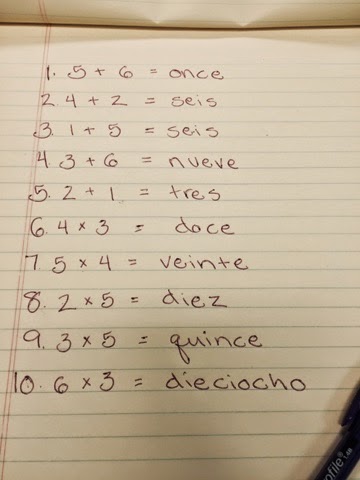 1. 5 + 6 = once
2. 4 + 2 = seis
3. 1 + 5 = seis
4. 3 + 6 = nueve
5. 2 + 1 = tres
6. 4 x 3 = doce
7. 5 x 4 = veinte
8. 2 x 5 = diez
9. 3 x 5 = quince
10. 6 x 3 = dieciocho